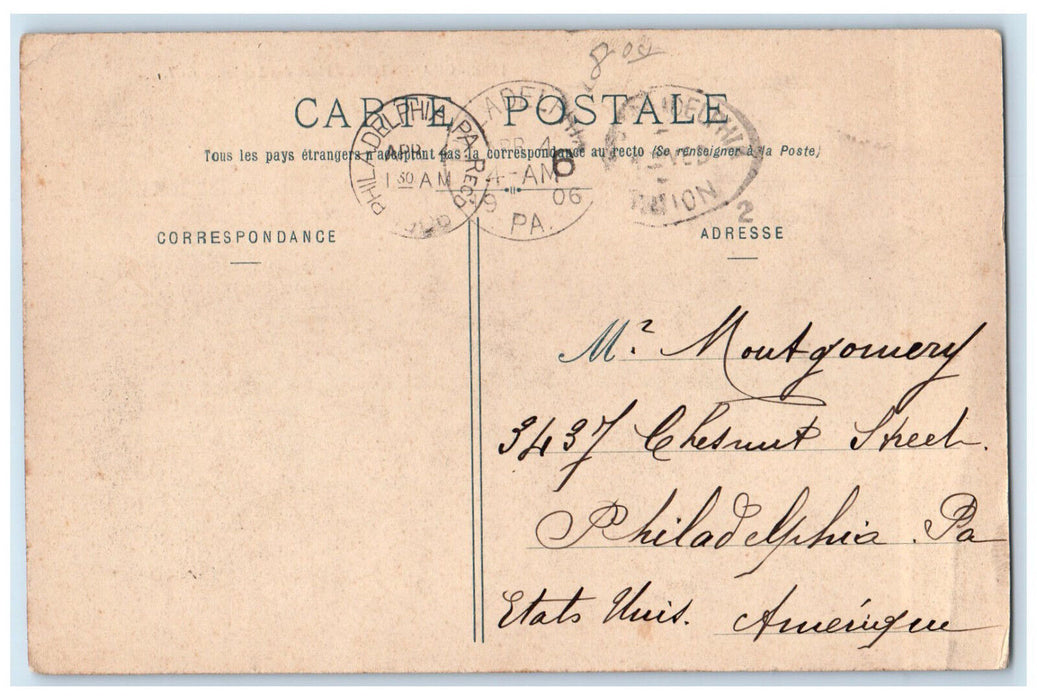 8 00
CARTE POSTALE
Tous les pays étrangers n'acceptent pas la correspondance au recto (Se renseigner à la Poste)
PHILADELPHIA, PA. REC'D
APR 4
1 30 AM
1906
PHILADELPHIA
APR 4
4-AM
06
PA.
6
2
CORRESPONDANCE
ADRESSE
Mr Montgomery
3437 Chesnut Street.
Philadelphia. Pa
Etats Unis. Amérique